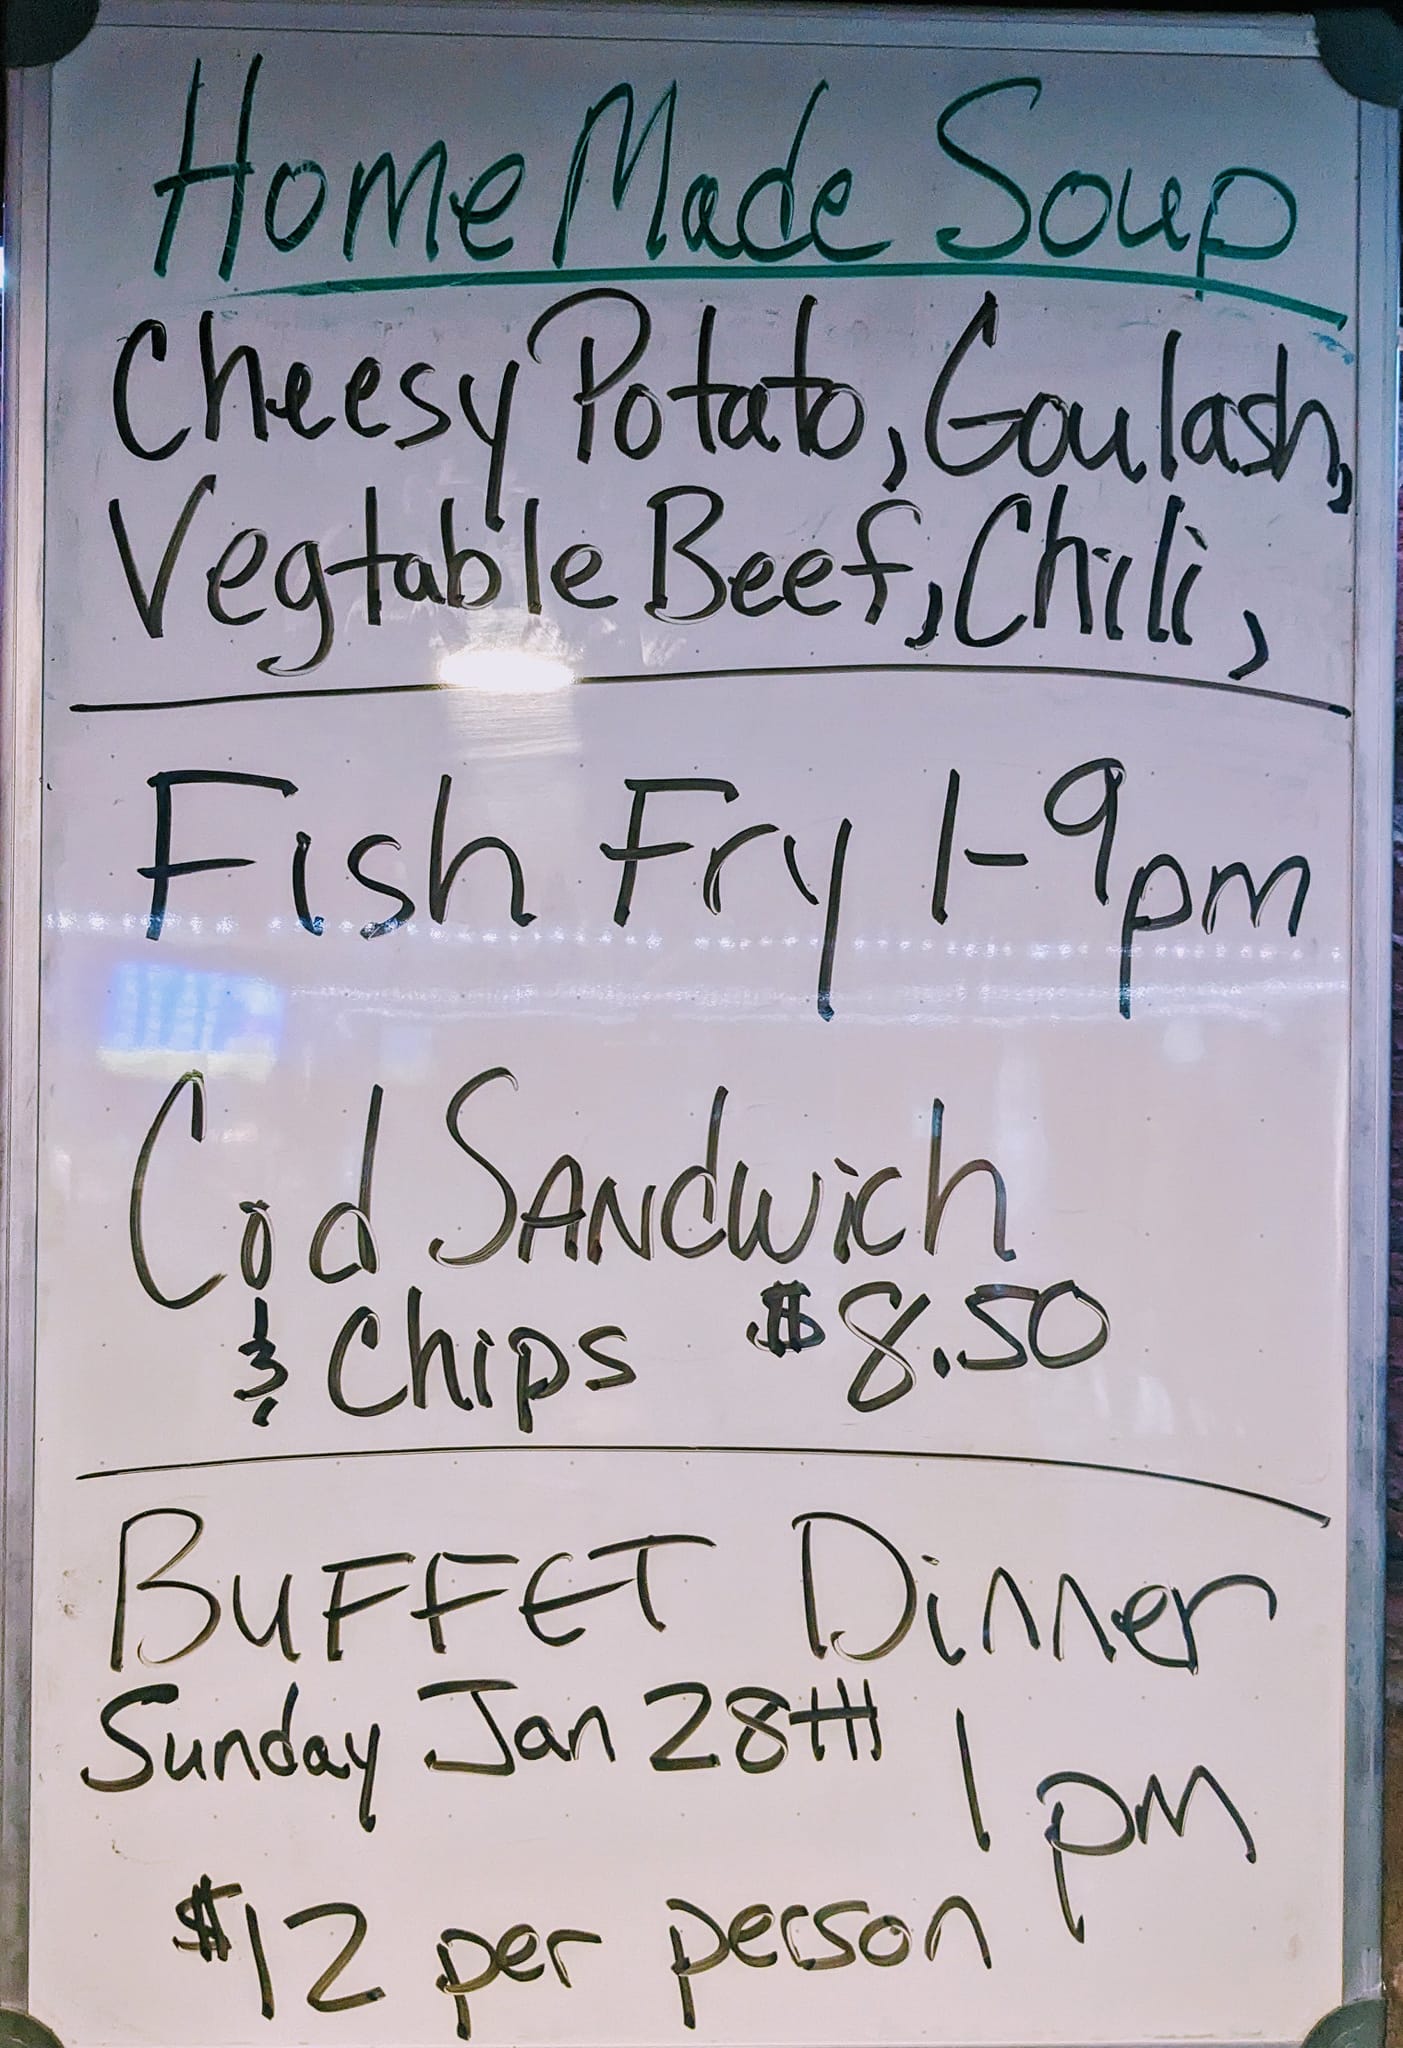 Home Made Soup
Cheesy Potato, Goulash,
Vegtable Beef, Chili,
Fish Fry 1-9pm
Cod SANdwich
& Chips $8.50
BuFFET Dinner
Sunday Jan 28TH 1pm
$12 per person